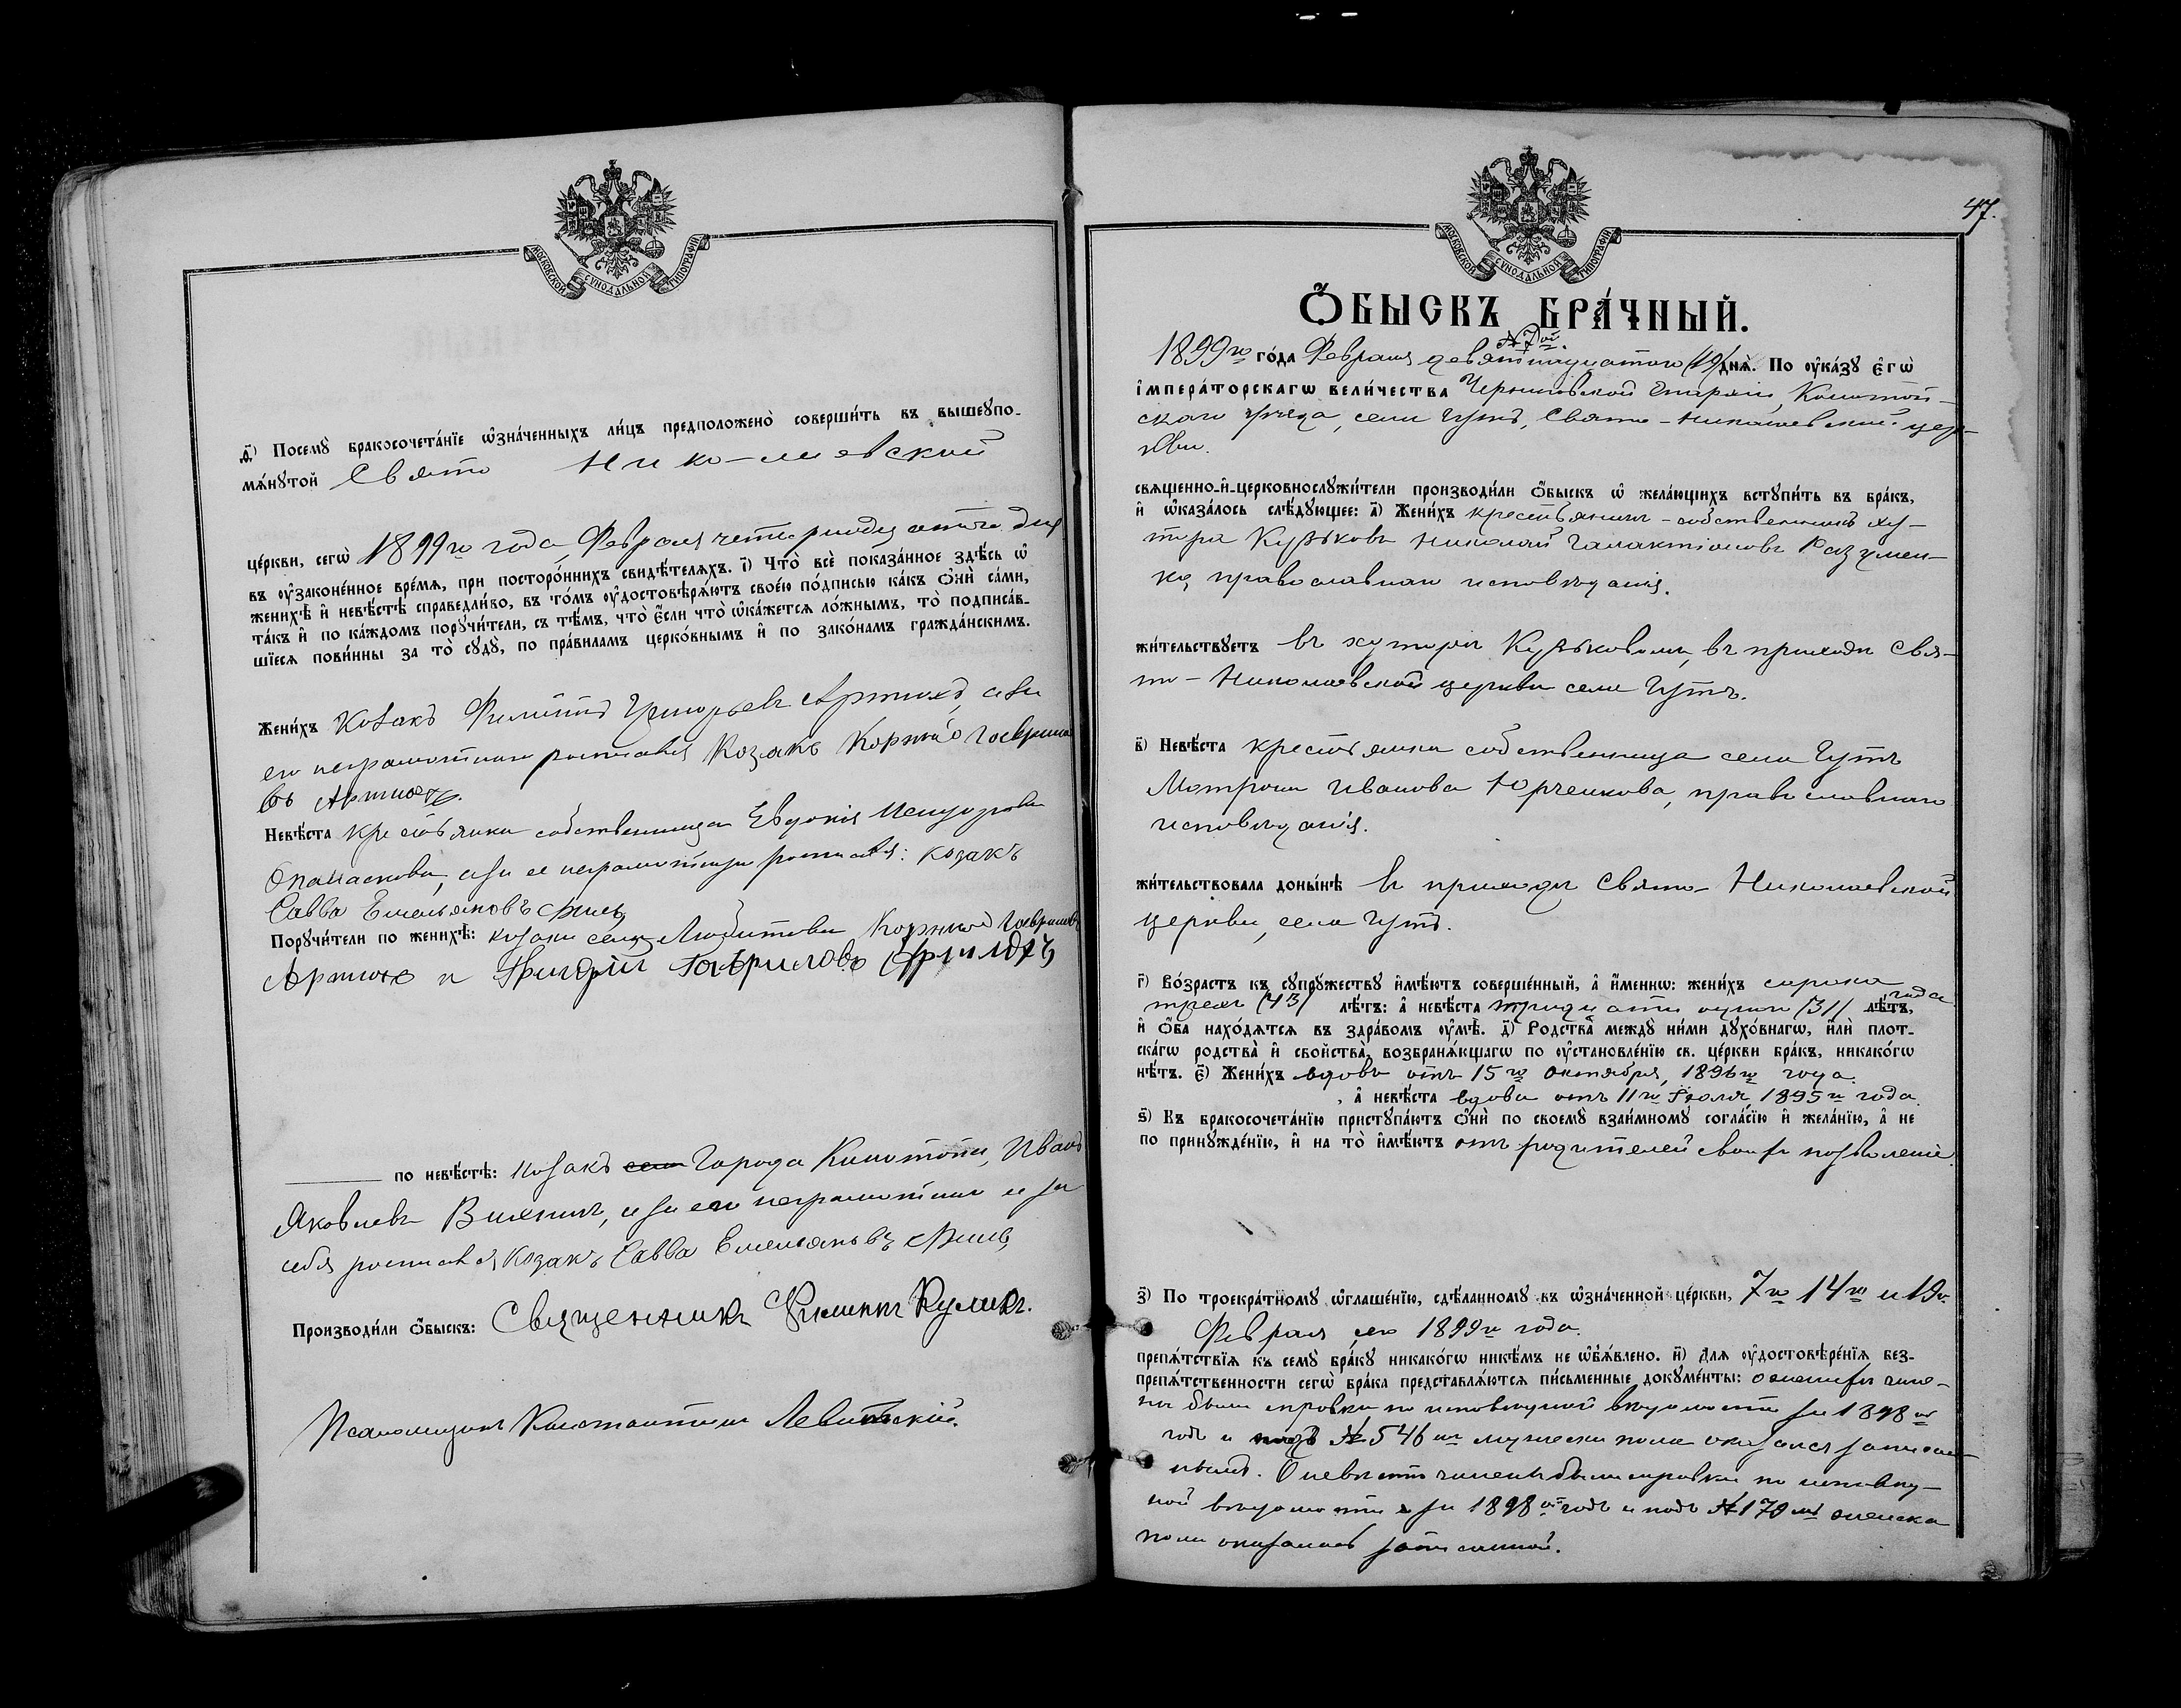 МОСКОВСКОЙ СѴНОДАЛЬНОЙ ТИПОГРАФІИ
Посемꙋ̀ бракосочета́нїе ѡ҆зна́ченныхъ ли́цъ предположено̀ соверши́ть въ вышеꙋпо-
мѧ́нꙋтой Свято Нико-лаевской
це́ркви, сегѡ̀ 1899го года, Февраля четырнадцатаго дня
въ ᲂу҆законе́нное вре́мѧ, при посторо́ннихъ свидѣ́телѧхъ. і҃) Что̀ всѐ пока́занное здѣ́сь ѡ҆
женихѣ̀ и҆ невѣ́стѣ справедли́во, въ то́мъ ᲂу҆достовѣрѧ́ютъ свое́ю по́дписью ка́къ ѻ҆нѝ са́ми,
та́къ и҆ по ка́ждомъ порꙋчи́тели, съ тѣ́мъ, что̀ є҆́сли что̀ ѡ҆ка́жетсѧ ло́жнымъ, то̀ подписа́в-
шїесѧ пови́нны за то̀ сꙋдꙋ̀, по пра́виламъ церко́внымъ и҆ по зако́намъ гражда́нскимъ.
Жени́хъ Козакъ Филиппъ Григорьевъ Артюхъ, а за
его неграмотнаго росписався Козакъ Гаврило
въ Артюхъ.
Невѣ́ста крестьянка собственница Евдокія
а за ее неграмотную росписався: козакъ
Савва Емельяновъ
Порꙋчи́тели по женихѣ̀: козаки села Гавриловъ
Артюхъ и Григорій Гавриловъ Артюхъ
по невѣ́стѣ: козакъ Города Конотопа, Иванъ
Яковлевъ а за его неграмотнаго и за
себя росписався Козакъ Савва Емельяновъ
Производи́ли ѻ҆́быскъ: Священникъ Филиппъ Куликъ.
Псаломщикъ Константинъ Левитскій.
47.
МОСКОВСКОЙ СѴНОДАЛЬНОЙ ТИПОГРАФІИ
Ѻ҆́БЫСКЪ БРА́ЧНЫЙ.
№ 7ой.
1899го го́да Февраля девятнадцатого (19) днѧ̀. По ᲂу҆ка́зꙋ є҆гѡ̀
і҆мпера́торскагѡ вели́чества Черниговской Епархіи, Конотоп-
скаго уѣзда, села Гутъ, Свято-Николаевской цер-
кви.
свѧще́нно-и҆-церковнослꙋжи́тели производи́ли ѻ҆́быскъ ѡ҆ жела́ющихъ встꙋпи́ть въ бра́къ,
и҆ ѡ҆каза́лось слѣ́дꙋющее: а҃) Жени́хъ крестьянинъ-собственникъ ху-
тора Николай Галактіоновъ Разумен-
ко, православнаго исповѣданія.
жи́тельствꙋетъ въ хуторѣ въ приходѣ Свя-
то-Николаевской церкви села Гутъ.
в҃) Невѣ́ста крестьянка собственница села Гутъ
Мотрона Иванова Юрченкова, православнаго
исповѣданія.
жи́тельствовала доны́нѣ въ приходѣ Свято-Николаевской
церкви, села Гутъ.
г҃) Во́зрастъ къ сꙋпрꙋ́жествꙋ и҆мѣ́ютъ соверше́нный, а҆ и҆́менно: жени́хъ сорока
трехъ (43) года лѣ́тъ: а҆ невѣ́ста тридцати одного (31) лѣ́тъ,
и҆ ѻ҆́ба нахо́дѧтсѧ въ здра́вомъ ᲂу҆мѣ̀. д҃) Родства̀ междꙋ̀ ни́ми дꙋхо́внагѡ, и҆лѝ плот-
ска́гѡ родства̀ и҆ свойства̀, возбранѧ́ющагѡ по ᲂу҆становле́нїю св. це́ркви бра́къ, никако́гѡ
нѣ́тъ. є҃) Жени́хъ вдовъ отъ 15го Октября, 1896го года.
а҆ невѣ́ста вдова отъ 11го Іюля, 1895го года.
ѕ҃) Къ бракосочета́нїю пристꙋпа́ютъ ѻ҆нѝ по своемꙋ̀ взаи́мномꙋ согла́сїю и҆ жела́нїю, а҆ не
по принꙋжде́нїю, и҆ на то̀ и҆мѣ́ютъ отъ родителей своихъ позволеніе.
з҃) По троекра́тномꙋ ѡ҆глаше́нїю, сдѣ́ланномꙋ въ ѡ҆зна́ченной це́ркви, 7го 14го и 19го
Февраля сего 1899го года.
препѧ́тствїѧ къ семꙋ̀ бра́кꙋ никако́гѡ никѣ́мъ не ѡ҆б̾ѧ́влено. и҃) Длѧ ᲂу҆достовѣре́нїѧ без-
препѧ́тственности сегѡ̀ бра́ка представлѧ́ютсѧ пи́сьменные докꙋме́нты: о женихѣ чине-
ны были справки по исповѣдной вѣдомости за 1898ой
годъ и подъ № 546мъ мужеска пола оказался записан-
нымъ. О невѣстѣ чинены были справки по исповѣд-
ной вѣдомости за 1898ой годъ и подъ № 170мъ женска
пола оказалась записанной.